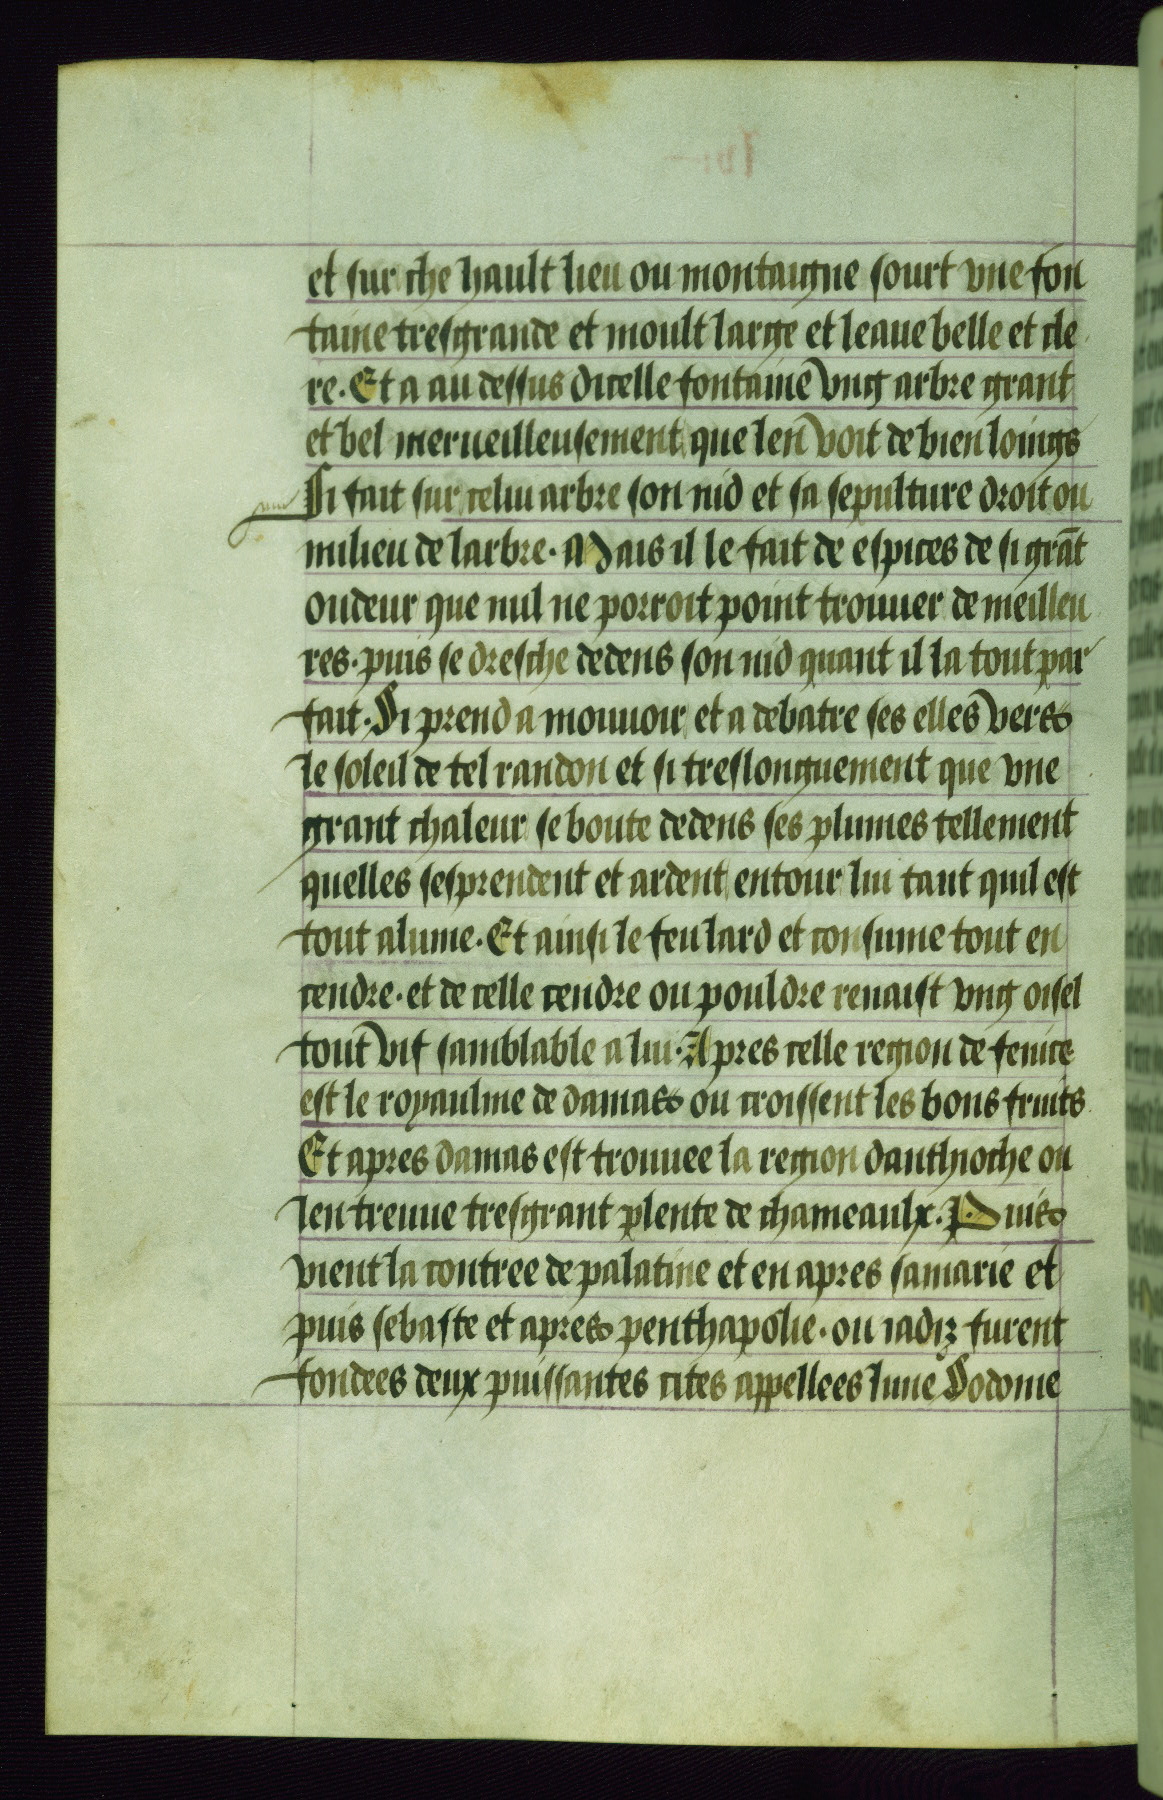 et sur che hault lieu ou montaigne sourt vne fon
taine tresgrande et moult large et leaue belle et cle
re. Et a au dessus dicelle fontaine vng arbre grant
et bel merueilleusement que len voit de bien loings
Si fait sur celui arbre son nid et sa sepulture droit ou
milieu de larbre. Mais il le fait de espices de si grāt
oudeur que nul ne porroit point trouuer de meilleu
res. puis se dresche dedens son nid quant il la tout par
fait. Si prend a mouuoir et a debatre ses elles vers
le soleil de tel randon et si treslonguement que vne
grant chaleur se boute dedens ses plumes tellement
quelles sesprendent et ardent entour lui tant quil est
tout alume. Et ainsi le feu lard et consume tout en
cendre. et de celle cendre ou pouldre renaist vng oisel
tout vif samblable a lui. Apres celle region de fenice
est le royaulme de damas ou croissent les bons fruits
Et apres damas est trouuee la region danthioche ou
len treuue tresgrant plente de chameaulx. Puis
vient la contree de palatine et en apres samarie et
puis sebaste et apres penthapolie. ou iadiz furent
fondees deux puissantes cites appellees lune Sodome